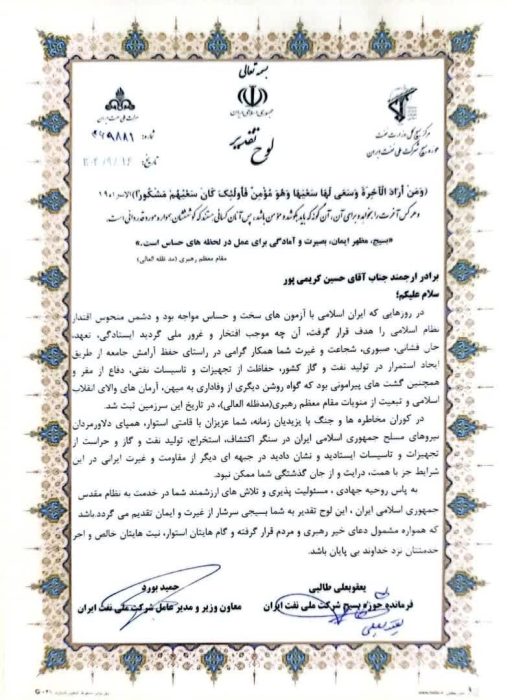 بسمه تعالی
جمهوری اسلامی ایران
لوح تقدیر
شرکت ملی نفت ایران
شماره: ۴۶۹۸۸۱
تاریخ:
مرکز بسیج کل وزارت نفت
حوزه بسیج شرکت ملی نفت ایران
(وَمَنْ أَرَادَ الْآخِرَةَ وَسَعَى لَهَا سَعْيَهَا وَهُوَ مُؤْمِنٌ فَأُولَئِكَ كَانَ سَعْيُهُمْ مَشْكُورًا) الاسراء ۱۹
و هر کس آخرت را بخواهد و برای آن، آن گونه که باید بکوشد و مؤمن باشد، پس آنان کسانی هستند که کوششان همواره مورد قدردانی است.
«بسیج، مظهر ایمان، بصیرت و آمادگی برای عمل در لحظه های حساس است.»
مقام معظم رهبری (مد ظله العالی)
برادر ارجمند جناب آقای حسین کریمی پور
سلام علیکم؛
در روزهایی که ایران اسلامی با آزمون های سخت و حساس مواجه بود و دشمن منحوس اقتدار
نظام اسلامی را هدف قرار گرفت، آن چه موجب افتخار و غرور ملی گردید ایستادگی، تعهد،
جان فشانی، صبوری، شجاعت و غیرت شما همکار گرامی در راستای حفظ آرامش جامعه از طریق
ایجاد استمرار در تولید نفت و گاز کشور، حفاظت از تجهیزات و تاسیسات نفتی، دفاع از مقر و
همچنین گشت های پیرامونی بود که گواه روشن دیگری از وفاداری به میهن، آرمان های والای انقلاب
اسلامی و تبعیت از منویات مقام معظم رهبری(مدظله العالی)، در تاریخ این سرزمین ثبت شد.
در کوران مخاطره ها و جنگ با یزیدیان زمانه، شما عزیزان با قامتی استوار، همپای دلاورمردان
نیروهای مسلح جمهوری اسلامی ایران در سنگر اکتشاف، استخراج، تولید نفت و گاز و حراست از
تجهیزات و تاسیسات ایستادید و نشان دادید در جبهه ای دیگر از مقاومت و غیرت ایرانی در این
شرایط جز با همت، درایت و از جان گذشتگی شما ممکن نبود.
به پاس روحیه جهادی ، مسئولیت پذیری و تلاش های ارزشمند شما در خدمت به نظام مقدس
جمهوری اسلامی ایران ، این لوح تقدیر به شما بسیجی سرشار از غیرت و ایمان تقدیم می گردد.باشد
که همواره مشمول دعای خیر رهبری و مردم قرار گرفته و گام هایتان استوار، نیت هایتان خالص و اجر
خدمتتان نزد خداوند بی پایان باشد.
یعقوبعلی طالبی
فرمانده حوزه بسیج شرکت ملی نفت ایران
حمید بورد
معاون وزیر و مدیر عامل شرکت ملی نفت ایران